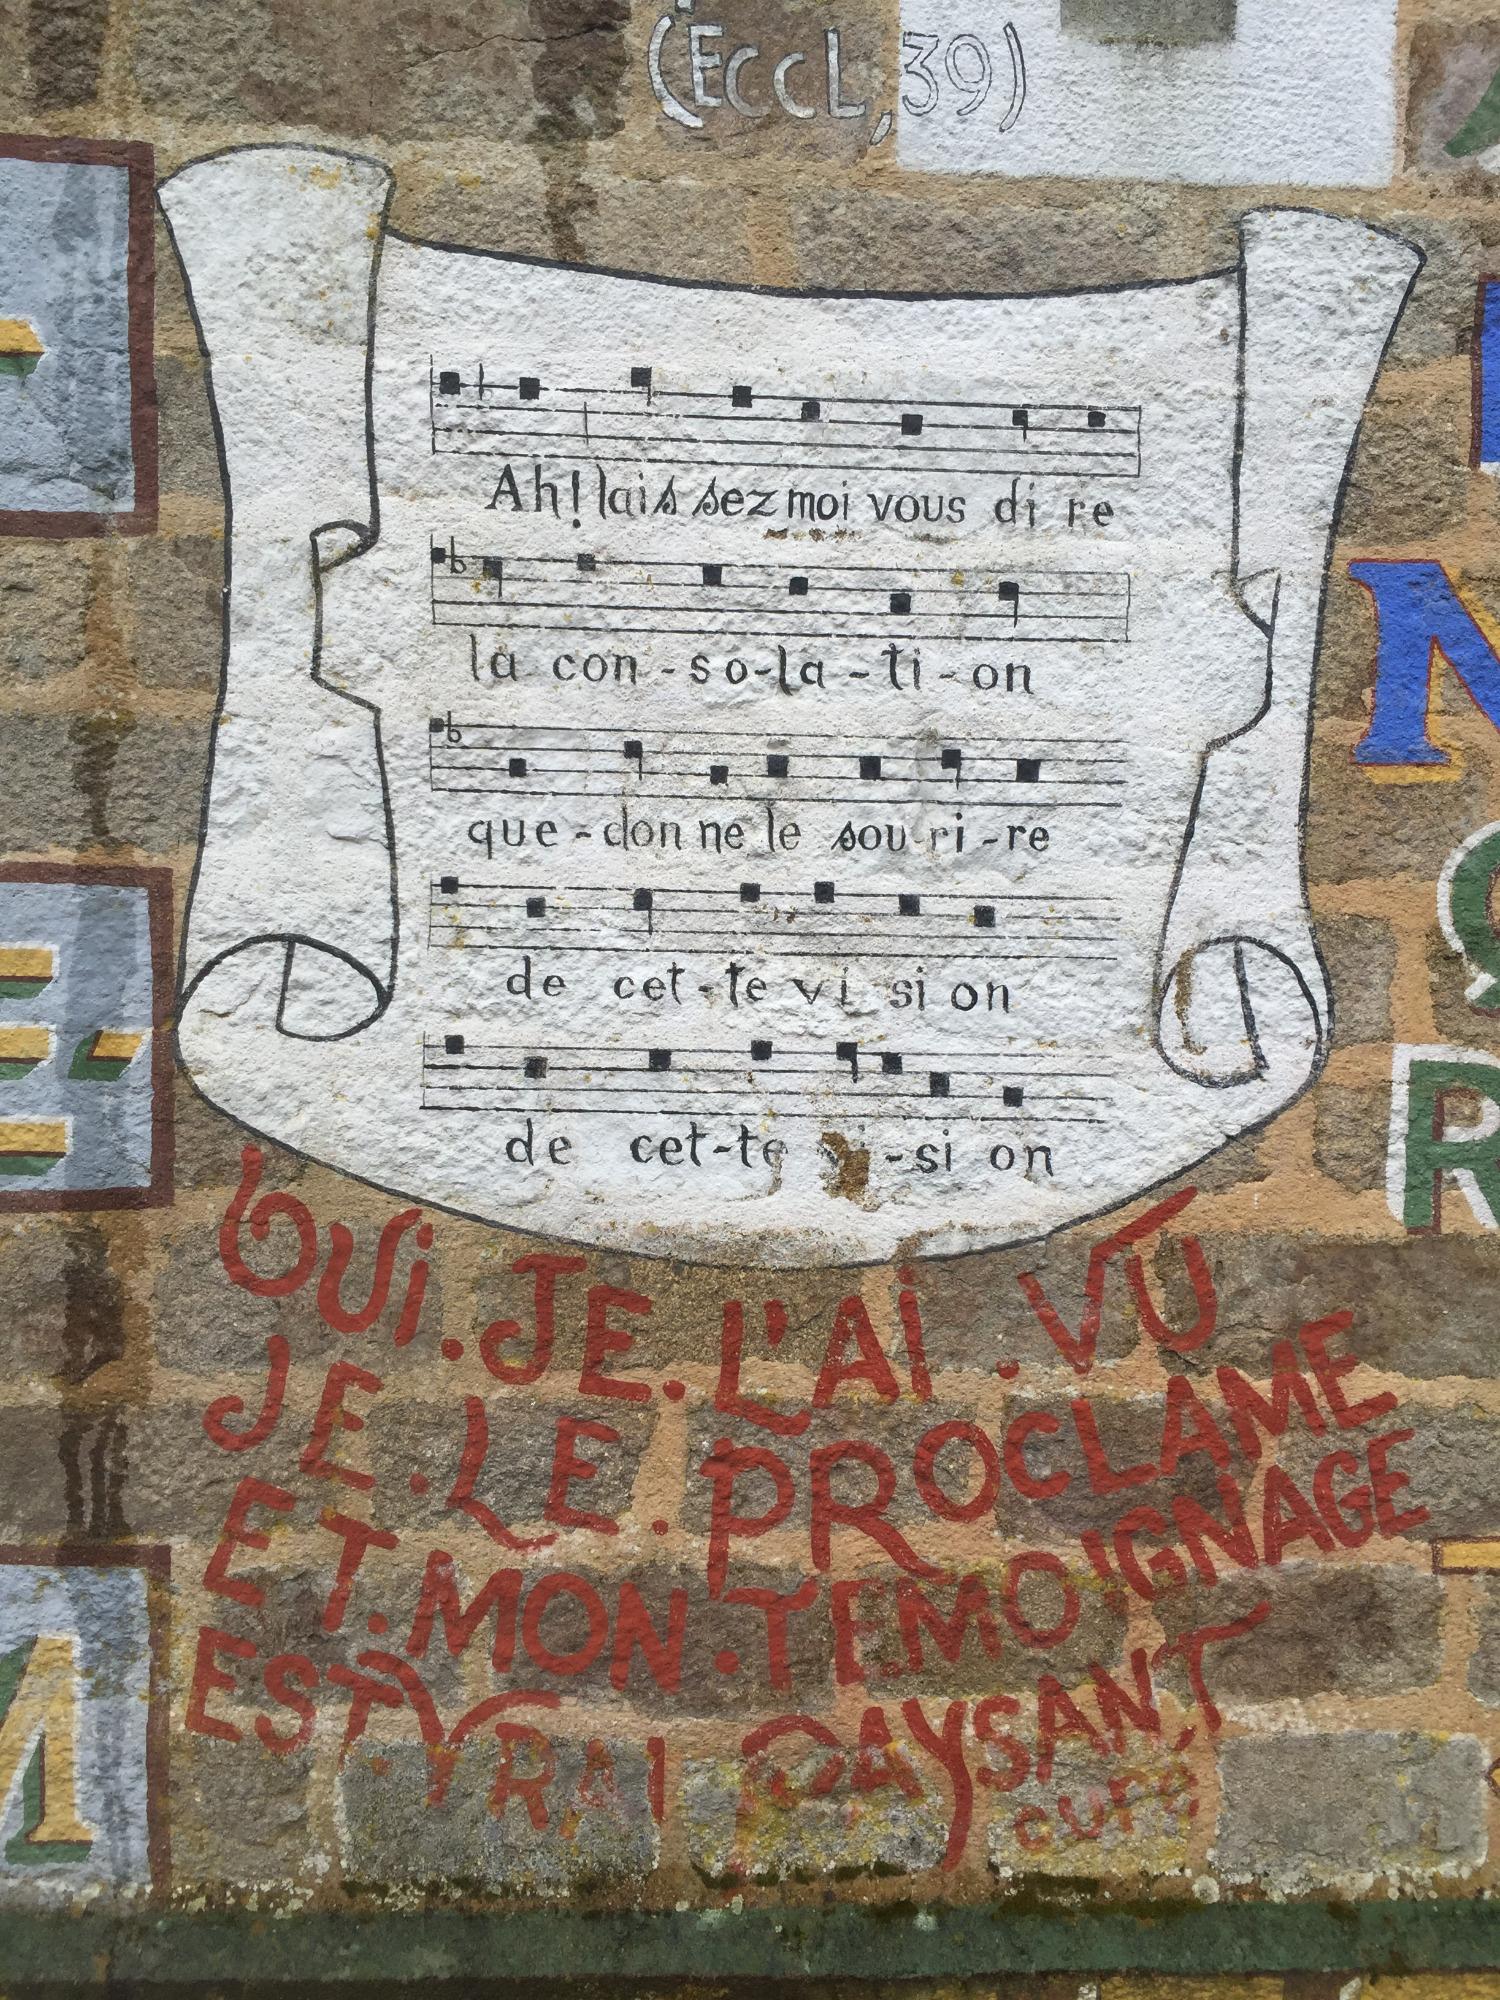 (ECCL, 39)
Ah! lais sez moi vous di re
la con-so-la-ti-on
que-don ne le sou-ri-re
de cet-te vi si on
de cet-te vi-si on
OUI. JE. L'AI. VU
JE. LE. PROCLAME
ET. MON. TEMOIGNAGE
EST VRAI PAYSANT